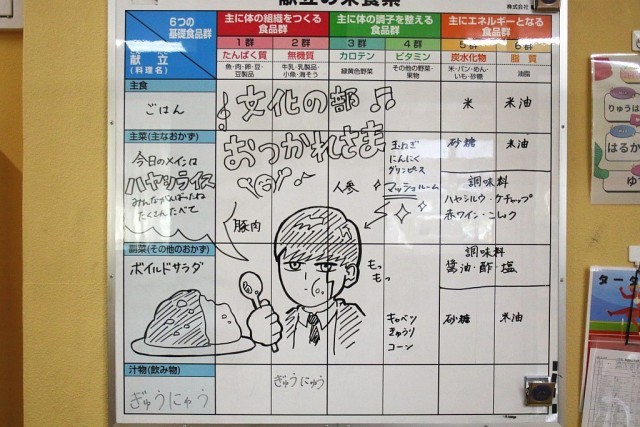 献立の栄養素
6つの
基礎食品群
献立
(料理名)
主に体の組織をつくる
食品群
主に体の調子を整える
食品群
主にエネルギーとなる
食品群
1群
2群
3群
4群
5群
6群
たんぱく質
無機質
カロテン
ビタミン
炭水化物
脂質
魚・肉・卵・豆・
豆製品
牛乳・乳製品・
小魚・海そう
緑黄色野菜
その他の野菜・
果物
米・パン・めん・
いも・砂糖
油脂
主食
ごはん
文化の部
米
米油
主菜(主なおかず)
今日のメインは
ハヤシライス
みんながんばったね
たくさんたべて
おつかれさま
豚肉
人参
玉ねぎ
にんにく
グリンピース
マッシュルーム
砂糖
米油
調味料
ハヤシルウ・ケチャップ
赤ワイン・こしょう
副菜(その他のおかず)
ボイルドサラダ
もっ
もっ
キャベツ
きゅうり
コーン
調味料
醤油・酢・塩
砂糖
米油
汁物(飲み物)
ぎゅうにゅう
ぎゅうにゅう
りゅうは
はるか